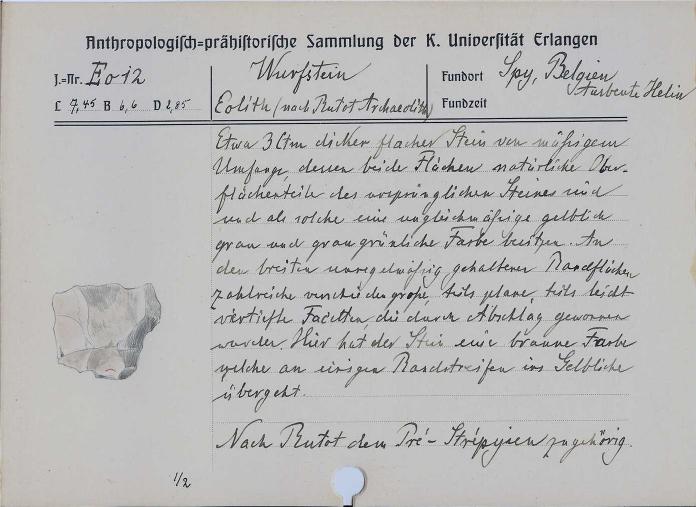 Anthropologisch=prähistorische Sammlung der K. Universität Erlangen
J.=Nr. Eo 12
L 7,45 B 6,6 D 2,85
Wurfstein
Eolith (nach Rutot Archaeolith)
Fundort Spy, Belgien
Fundzeit
Etwa 3 Ctm dicker flacher Stein von mäßigem
Umfange, dessen beide Flächen natürliche Ober-
flächenteile des ursprünglichen Steines sind
und als solche eine ungleichmäßige gelblich
grau und graugrünliche Farbe besitzen. An
den breiten unregelmäßig gehaltenen Randflächen
zahlreiche verschieden große, teils plane, teils leicht
vertiefte Facetten, die durch Abschlag gewonnen
wurden. Hier hat der Stein eine braune Farbe
welche an einigen Randstreifen ins Gelbliche
übergeht.
Nach Rutot dem Pré-Strépyien zugehörig.
1/2